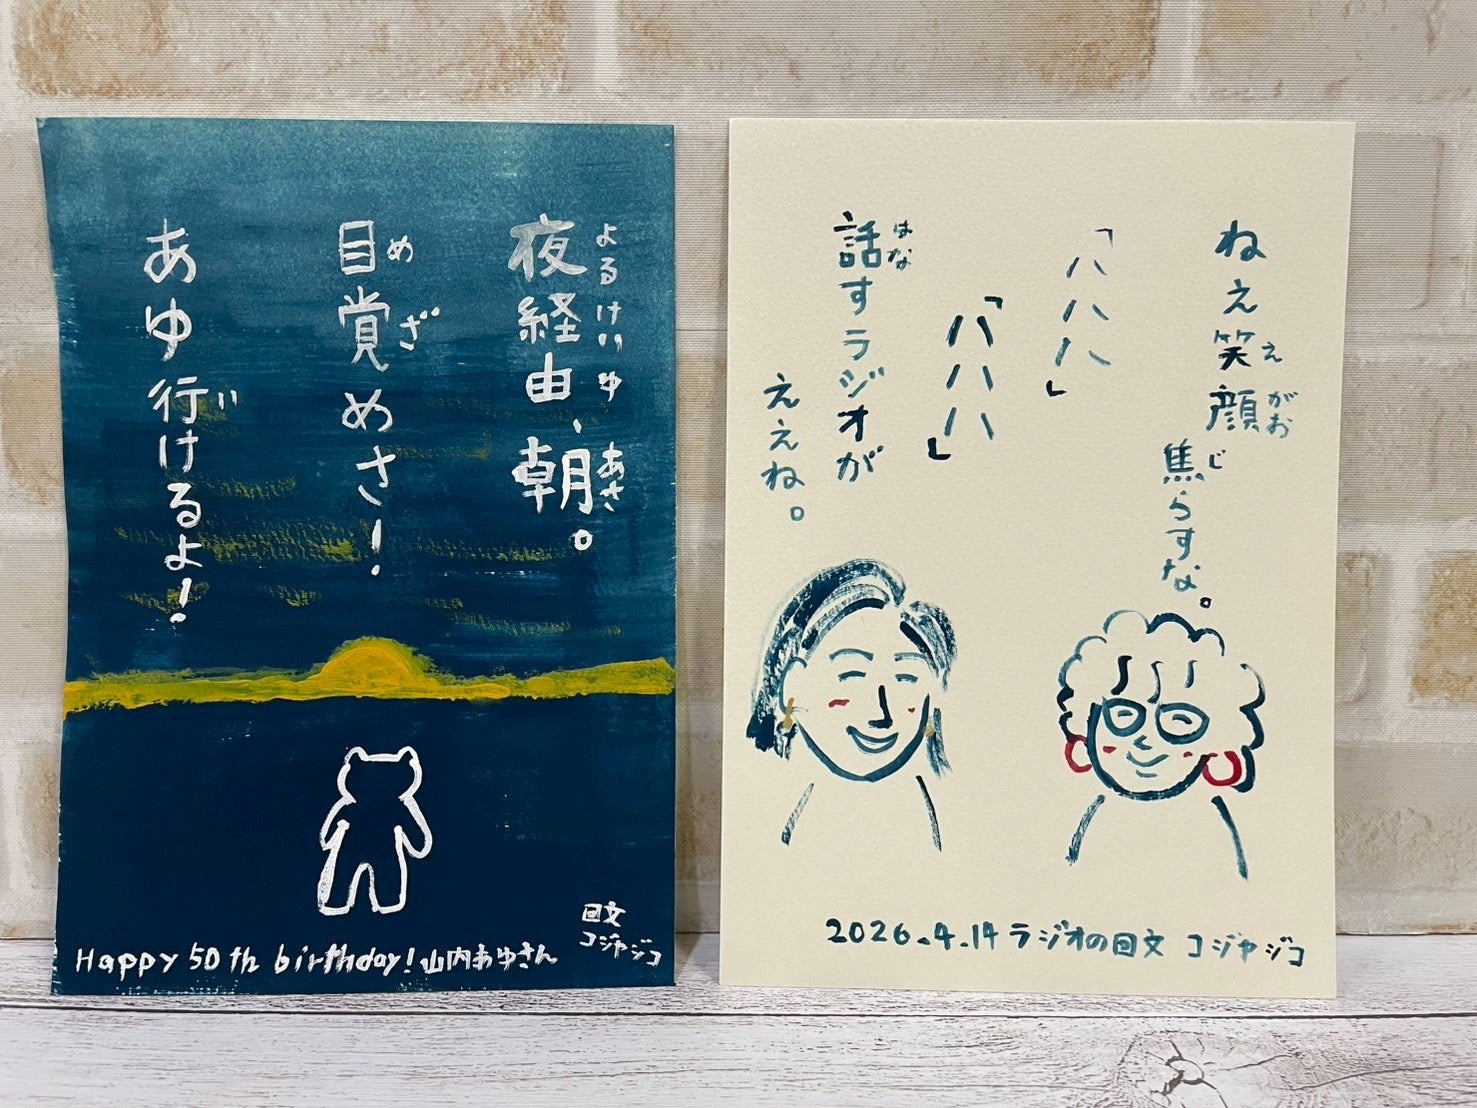 夜経由、朝。
よるけいゆ あさ
目覚めさ!
めざ
あゆ行けるよ!
い
回文
コジヤジコ
Happy 50th birthday! 山内あゆさん
ねえ笑顔
えがお
焦らすな。
じ
「ハハハ」
「ハハハ」
話すラジオが
はな
ええね。
2026.4.14 ラジオの回文 コジヤジコ